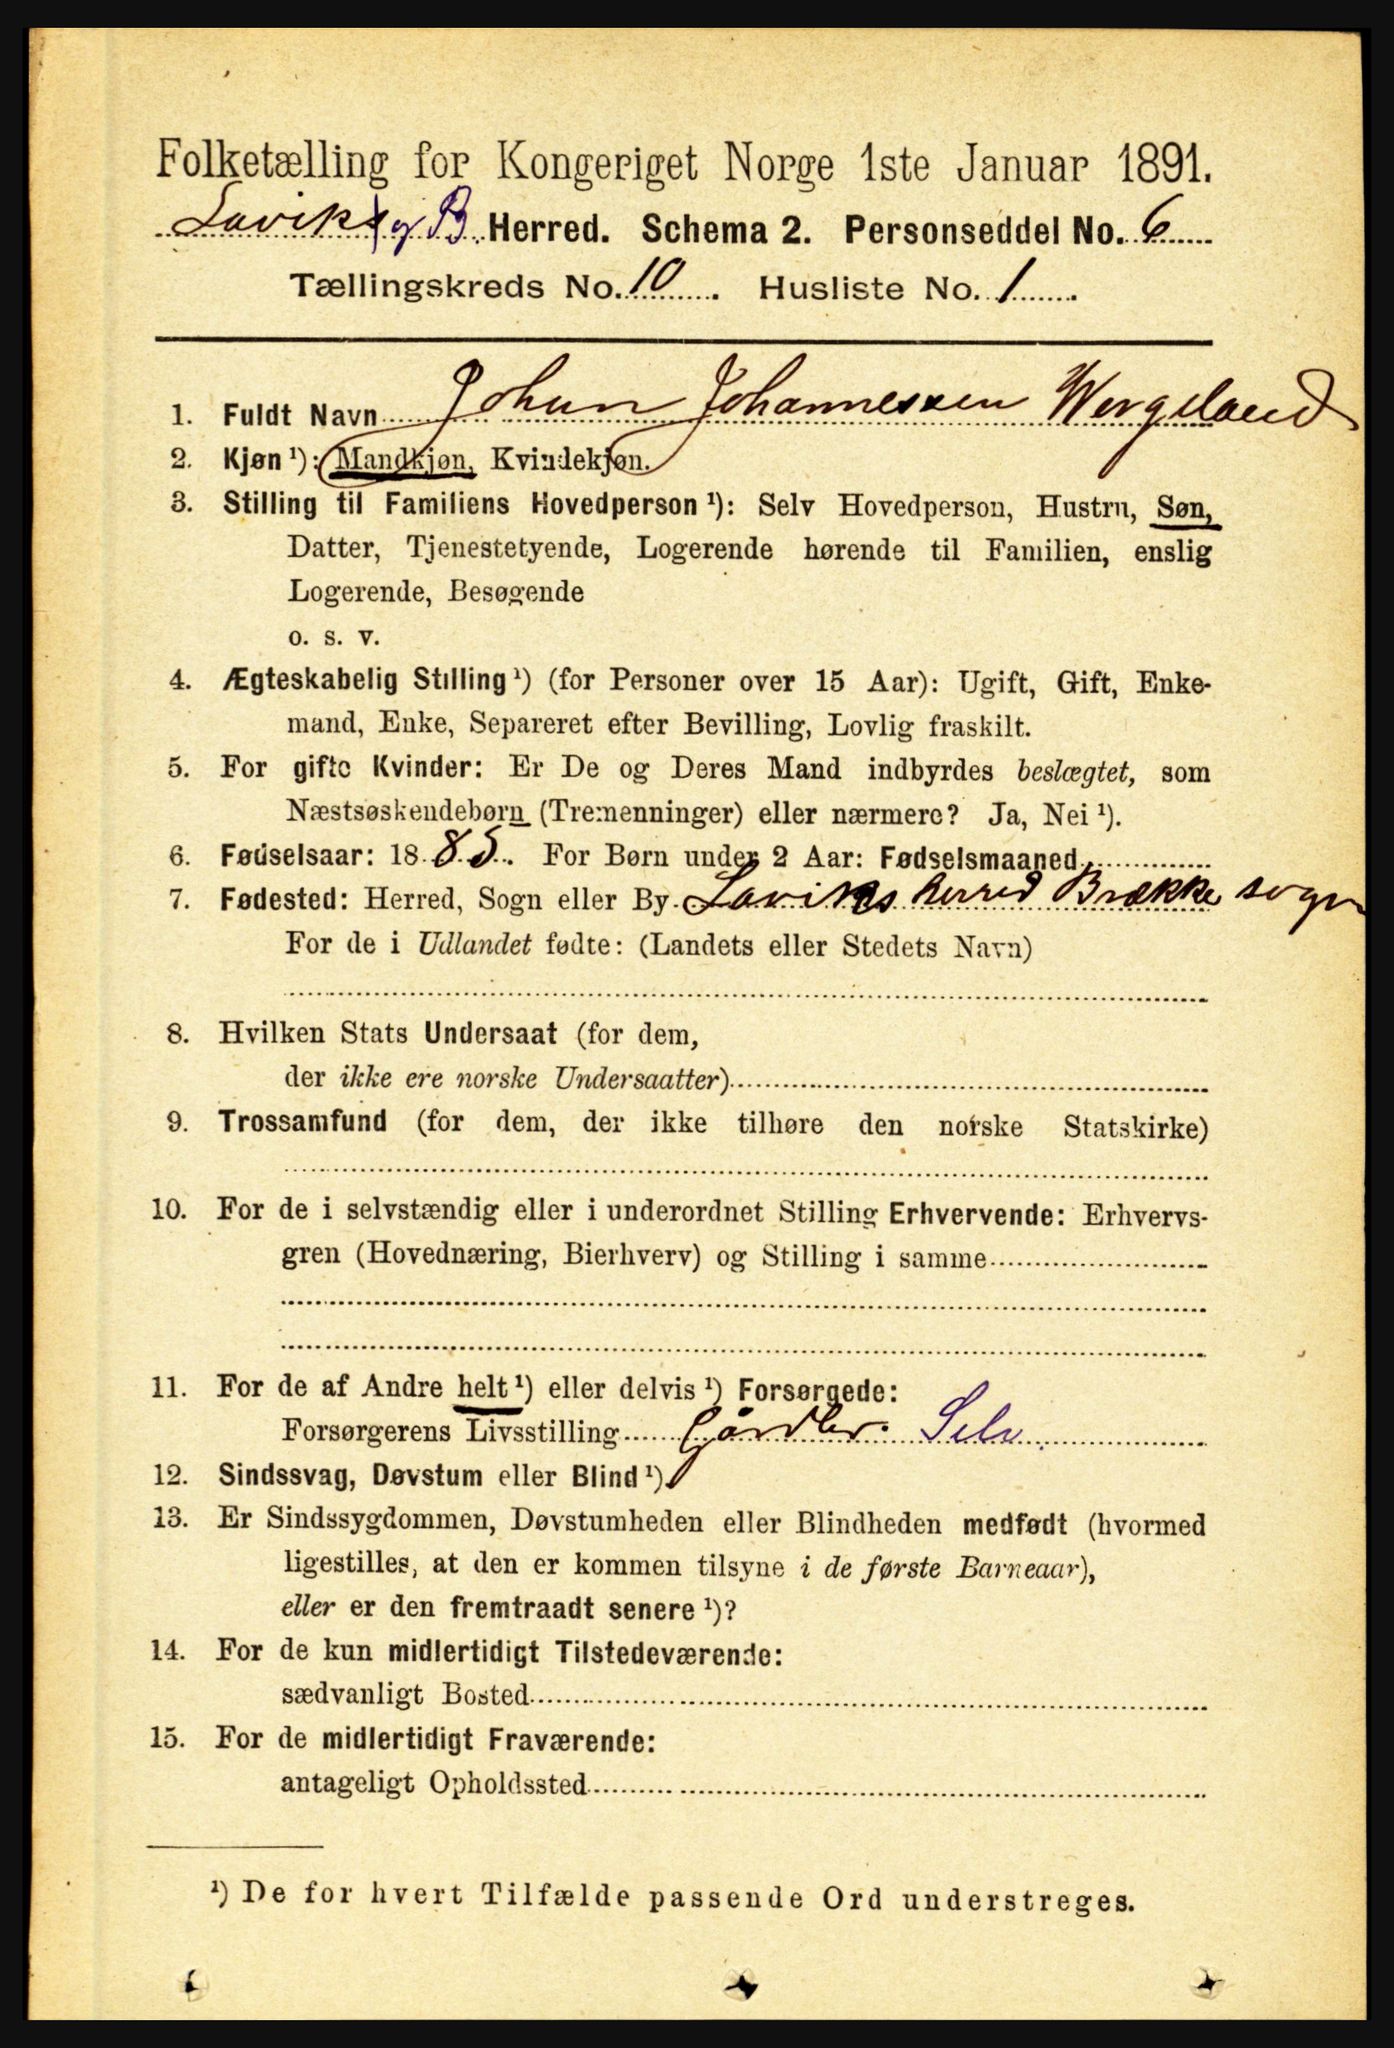 Folketælling for Kongeriget Norge 1ste Januar 1891.
Lavik og B Herred. Schema 2. Personseddel No. 6
Tællingskreds No. 10. Husliste No. 1.
1. Fuldt Navn Johan Johannessen Wergeland
2. Kjøn ¹): Mandkjøn, Kvindekjøn.
3. Stilling til Familiens Hovedperson ¹): Selv Hovedperson, Hustru, Søn,
Datter, Tjenestetyende, Logerende hørende til Familien, enslig
Logerende, Besøgende
o. s. v.
4. Ægteskabelig Stilling ¹) (for Personer over 15 Aar): Ugift, Gift, Enke-
mand, Enke, Separeret efter Bevilling, Lovlig fraskilt.
5. For gifte Kvinder: Er De og Deres Mand indbyrdes beslægtet, som
Næstsøskendebørn (Tremenninger) eller nærmere? Ja, Nei ¹).
6. Fødselsaar: 1885. For Børn under 2 Aar: Fødselsmaaned
7. Fødested: Herred, Sogn eller By Laviks herred Brække sogn
For de i Udlandet fødte: (Landets eller Stedets Navn)
8. Hvilken Stats Undersaat (for dem,
der ikke ere norske Undersaatter)
9. Trossamfund (for dem, der ikke tilhøre den norske Statskirke)
10. For de i selvstændig eller i underordnet Stilling Erhvervende: Erhvervs-
gren (Hovednæring, Bierhverv) og Stilling i samme
11. For de af Andre helt ¹) eller delvis ¹) Forsørgede:
Forsørgerens Livsstilling Gårdbr. Selv.
12. Sindssvag, Døvstum eller Blind ¹).
13. Er Sindssygdommen, Døvstumheden eller Blindheden medfødt (hvormed
ligestilles, at den er kommen tilsyne i de første Barneaar),
eller er den fremtraadt senere ¹)?
14. For de kun midlertidigt Tilstedeværende:
sædvanligt Bosted
15. For de midlertidigt Fraværende:
antageligt Opholdssted
¹) De for hvert Tilfælde passende Ord understreges.